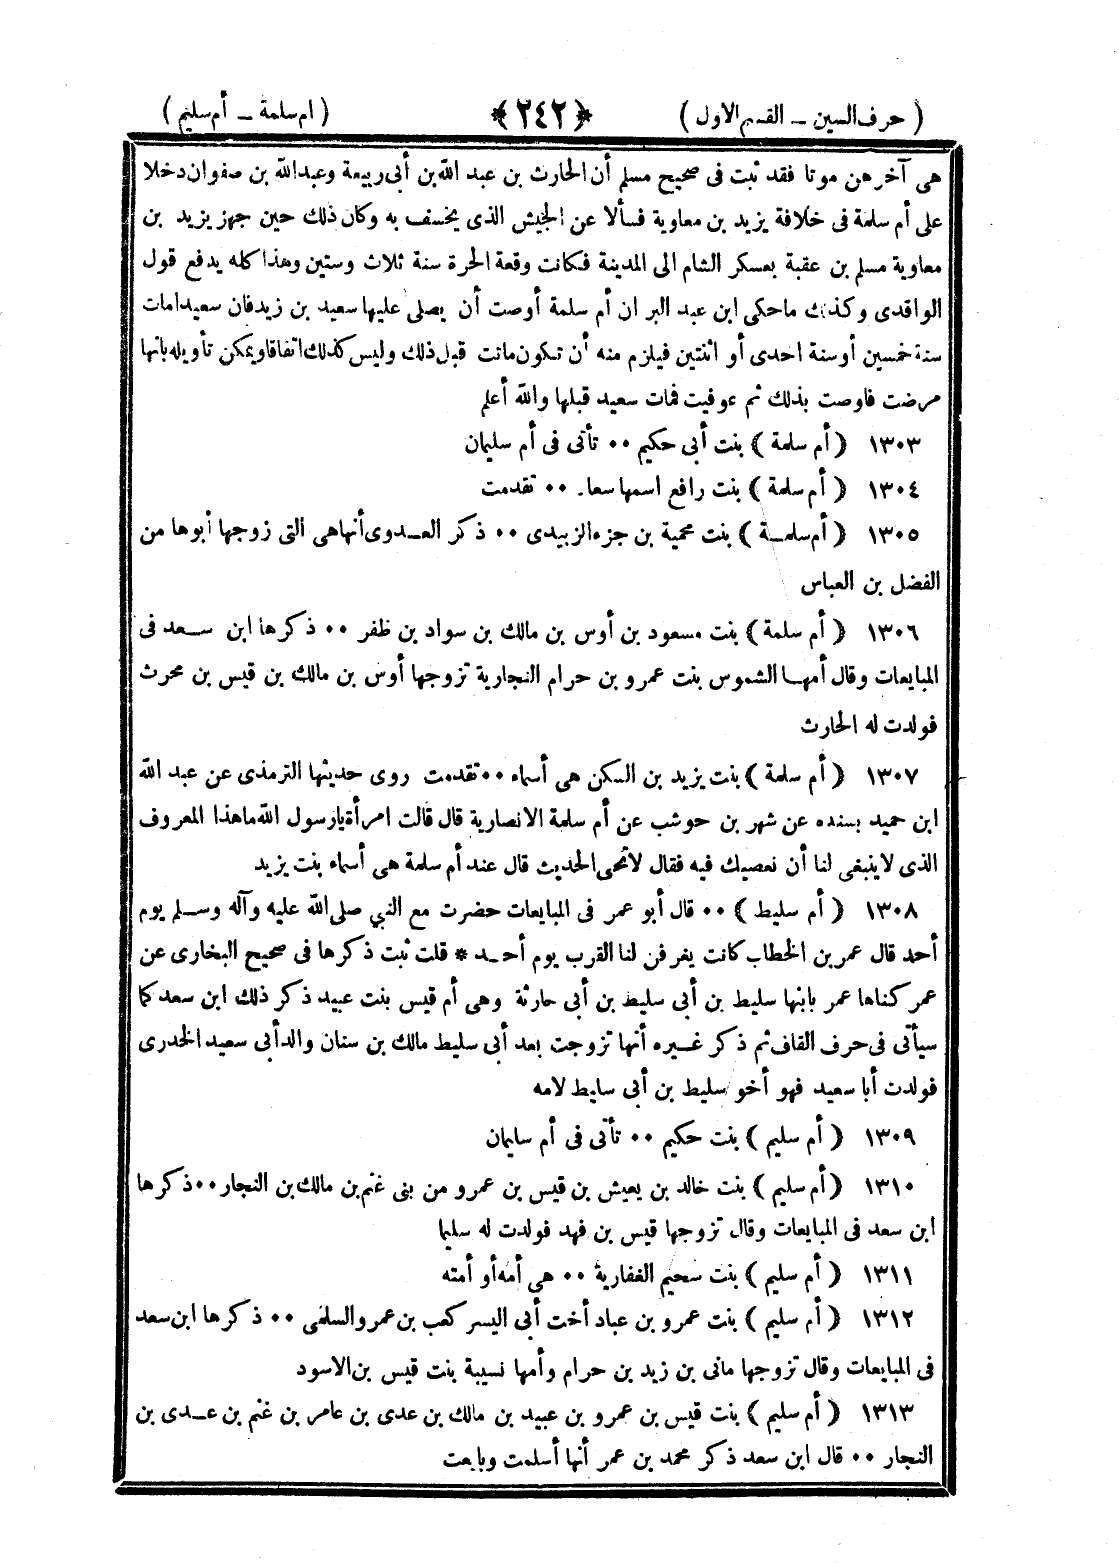 ( حرف السين – القسم الاول ) ﴿ ٢٤٢ ﴾ ( ام سلمة – أم سليم )
هى آخرهن موتا فقد ثبت فى صحيح مسلم أن الحارث بن عبد الله بن أبى ربيعة وعبدالله بن صفوان دخلا
على أم سلمة فى خلافة يزيد بن معاوية فسألا عن الجيش الذى يخسف به وكان ذلك حين جهز يزيد بن
معاوية مسلم بن عقبة بعسكر الشام الى المدينة فكانت وقعة الحرة سنة ثلاث وستين وهذا كله يدفع قول
الواقدى وكذلك ماحكى ابن عبد البر ان أم سلمة أوصت أن يصلى عليها سعيد بن زيد فان سعيدا مات
سنة خمسين أو سنة احدى أو اثنتين فيلزم منه أن تكون ماتت قبل ذلك وليس كذلك اتفاقا ويمكن تأويله بانها
مرضت فاوصت بذلك ثم عوفيت فمات سعيد قبلها والله أعلم
١٣٠٣ ( أم سلمة ) بنت أبى حكيم ٠٠ تأتى فى أم سليمان
١٣٠٤ ( أم سلمة ) بنت رافع اسمها سعاد ٠٠ تقدمت
١٣٠٥ ( أم سلمة ) بنت محمية بن جزء الزبيدى ٠٠ ذكر العدوى أنها هى التى زوجها أبوها من
الفضل بن العباس
١٣٠٦ ( أم سلمة ) بنت مسعود بن أوس بن مالك بن سواد بن ظفر ٠٠ ذكرها ابن سعد فى
المبايعات وقال أمها الشموس بنت عمرو بن حرام النجارية تزوجها أوس بن مالك بن قيس بن محرث
فولدت له الحارث
١٣٠٧ ( أم سلمة ) بنت يزيد بن السكن هى أسماء ٠٠ تقدمت روى حديثها الترمذى عن عبد الله
ابن حميد بسنده عن شهر بن حوشب عن أم سلمة الانصارية قال قالت امرأة يارسول الله ماهذا المعروف
الذى لاينبغى لنا أن نعصيك فيه فقال لاتنحى الحديث قال عند أم سلمة هى أسماء بنت يزيد
١٣٠٨ ( أم سليط ) ٠٠ قال أبو عمر فى المبايعات حضرت مع النبي صلى الله عليه وآله وسلم يوم
أحد قال عمر بن الخطاب كانت يغرفن لنا القرب يوم أحد * قلت ثبت ذكرها فى صحيح البخارى عن
عمر كناها عمر بابنها سليط بن أبى سليط بن أبى حارثة وهى أم قيس بنت عبيد ذكر ذلك ابن سعد كما
سيأتى فى حرف القاف ثم ذكر غيره أنها تزوجت بعد أبى سليط مالك بن سنان والد أبى سعيد الخدرى
فولدت أبا سعيد فهو أخو سليط بن أبى سليط لامه
١٣٠٩ ( أم سليم ) بنت حكيم ٠٠ تأتى فى أم سليمان
١٣١٠ ( أم سليم ) بنت خالد بن يعيش بن قيس بن عمرو من بنى غنم بن مالك بن النجار ٠٠ ذكرها
ابن سعد فى المبايعات وقال تزوجها قيس بن فهد فولدت له سليما
١٣١١ ( أم سليم ) بنت سحيم الغفارية ٠٠ هى أمه أو أمته
١٣١٢ ( أم سليم ) بنت عمرو بن عباد أخت أبى اليسر كعب بن عمرو السلمى ٠٠ ذكرها ابن سعد
فى المبايعات وقال تزوجها مانى بن زيد بن حرام وأمها نسيبة بنت قيس بن الاسود
١٣١٣ ( أم سليم ) بنت قيس بن عمرو بن عبيد بن مالك بن عدى بن عامر بن غنم بن عدى بن
النجار ٠٠ قال ابن سعد ذكر محمد بن عمر أنها أسلمت وبايعت